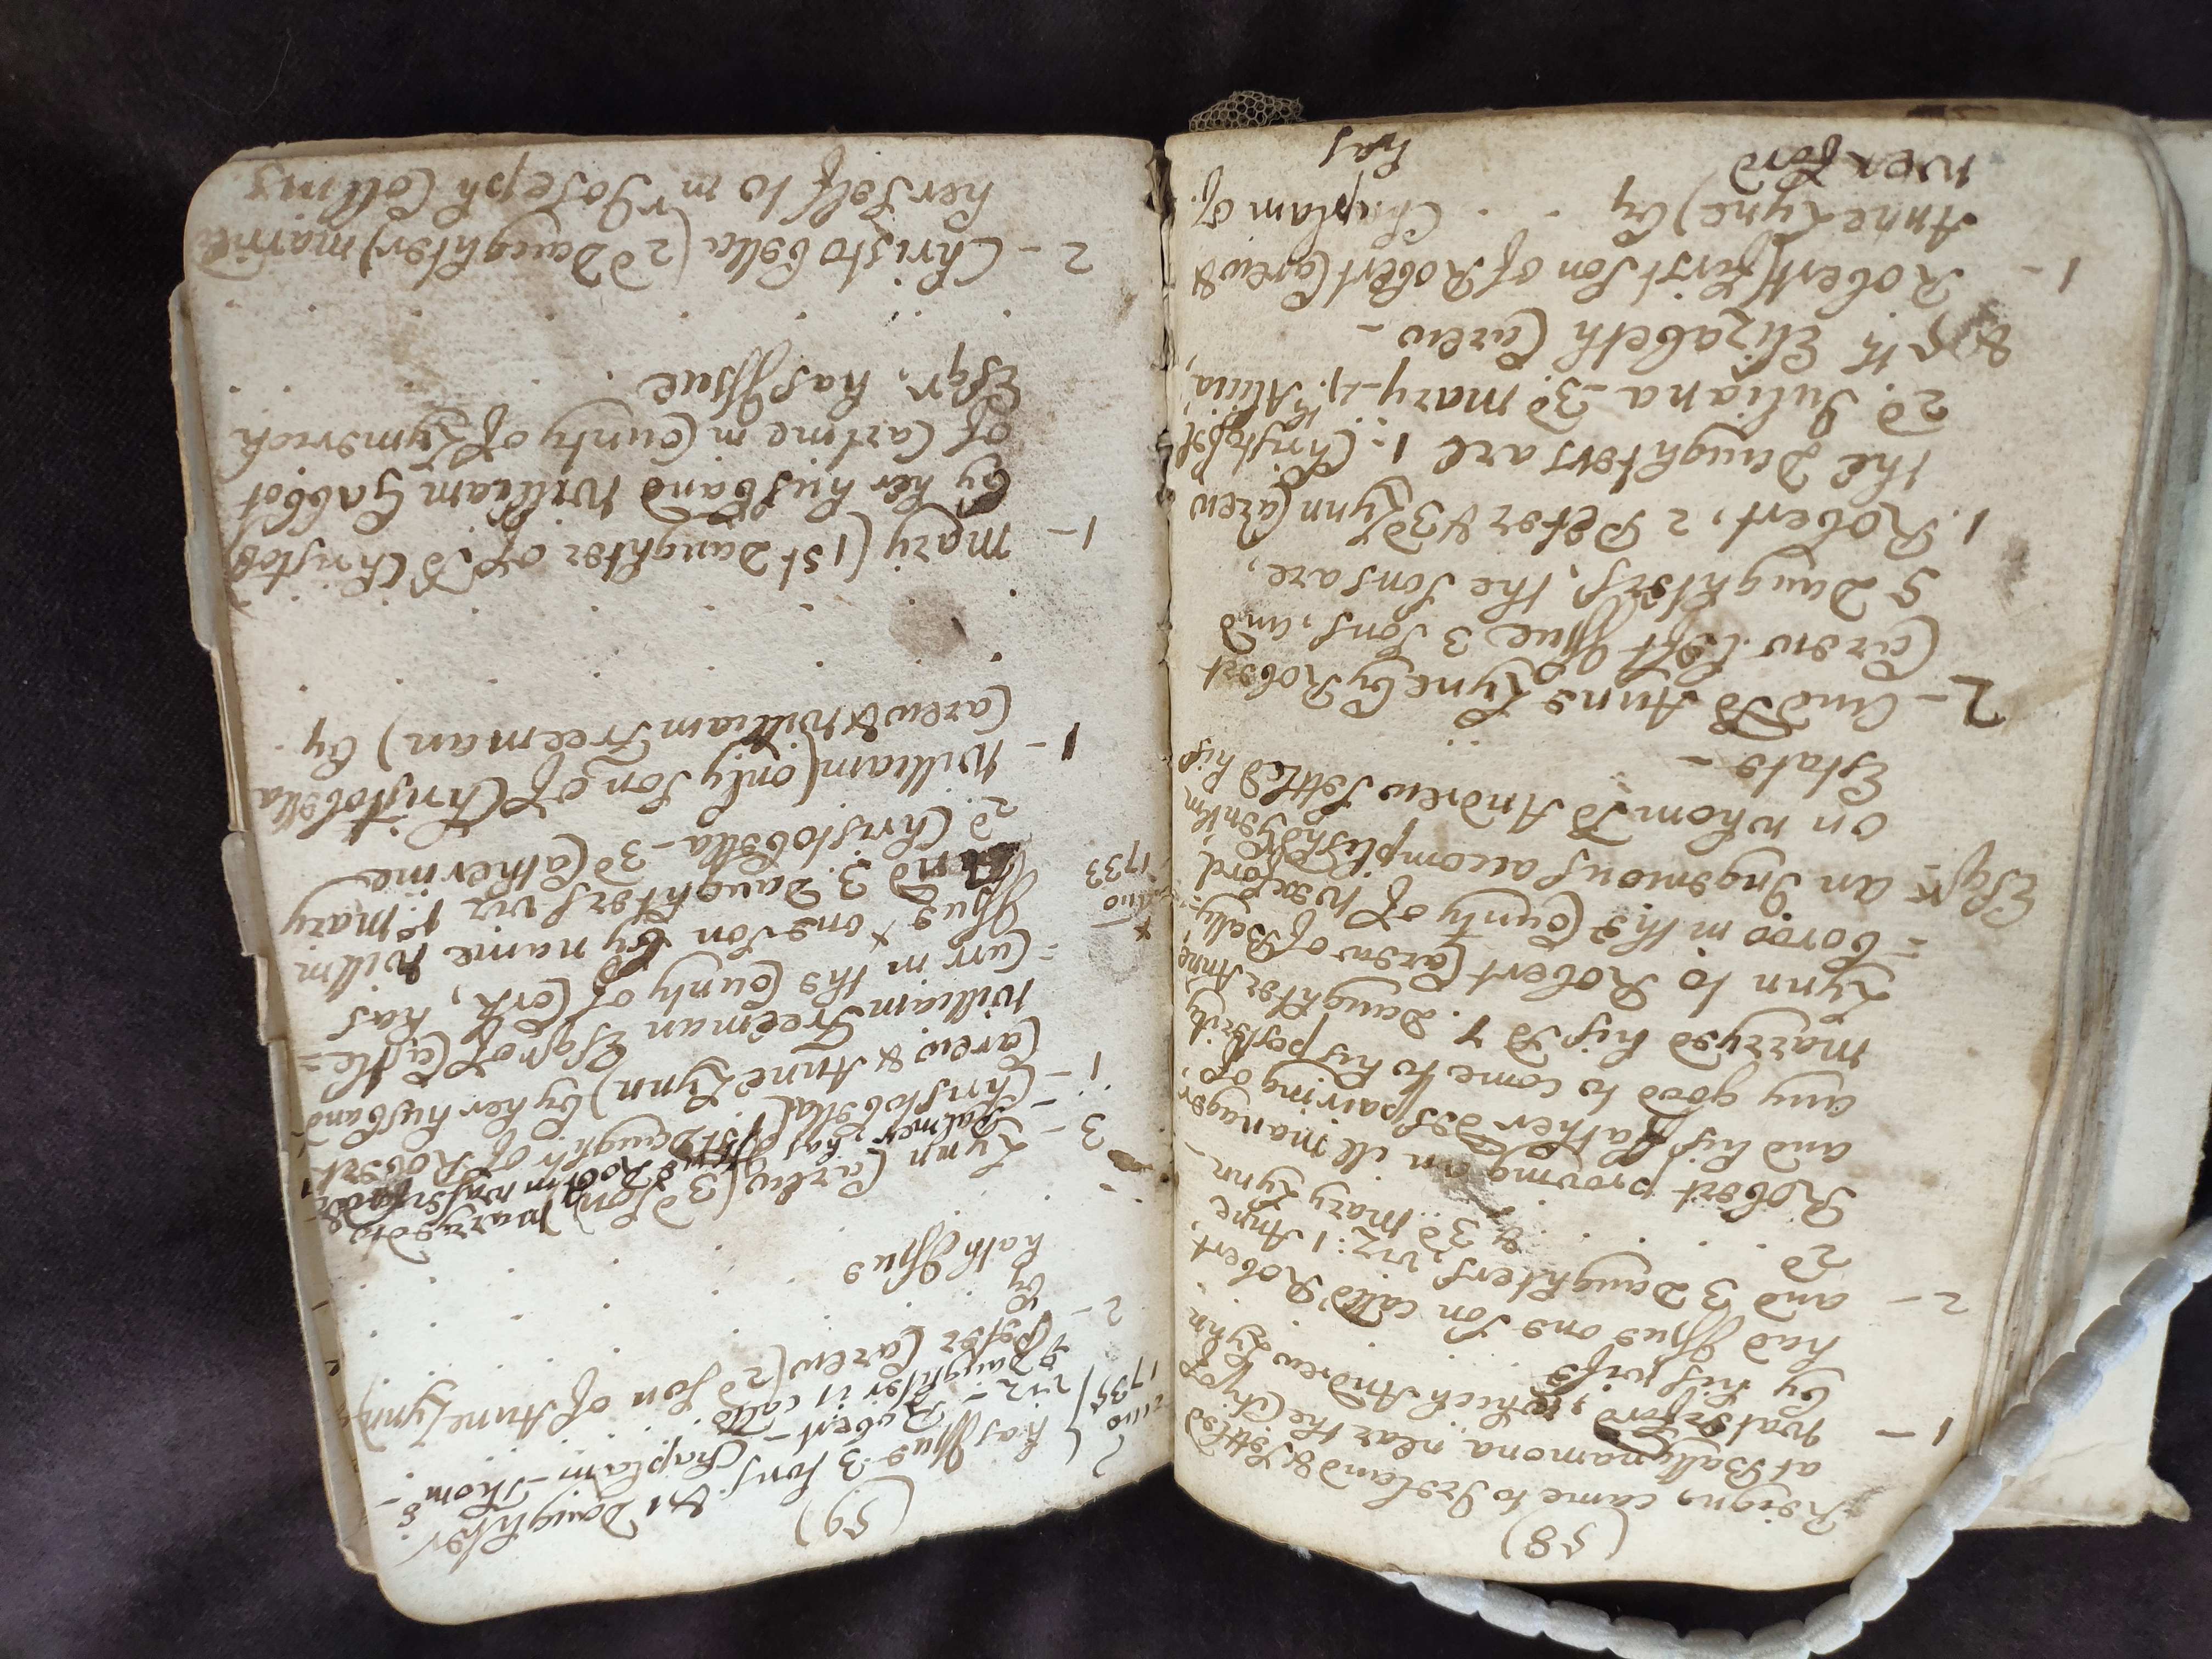 (58)
Reign, came to Ireland & settled
at Ballynamona near the City of
1 - Waterford, which Andrew Lynn
by his wife . . . .
had Issue one Son call'd Robert,
2 - and 3 Daughters, viz: 1 Anne
2d . . . . & 3d Mary Lynn -
Robert proving an ill manager
and his Father despairing of
any good to come to his posterity
marryed his Sd Daughter Anne
Lynn to Robert Carew of Bally=
=boroo in the County of Wexford
Esqr = an Ingenious accomplish'd Gentlm
on whom Sd Andrew settled his
Estate -
2 - And Sd Anne Lyne by Robert
Carew left Issue 3 Sons, and
5 Daughters, the Sons are,
1. Robert, 2 Peter & 3d Lynn Carew
the Daughters are 1: Christobel
2d. Juliana - 3d mary - 4. Alicia,
& 5th Elizabeth Carew -
1 - Robert (first Son of Robert Carew &
Anne Lyne) by . . Chaplain of
Wexford has
(59)
has Issue 3 Sons & 1 Daughter
Ano 1735 viz - Robert - Chaplain - Thoms -
& Daughter is calld . . .
2 - Peter Carew (2d Son of Anne Lynn)
by . . . . .
hath Issue . . . .
3 - Lynn Carew (3d Son) maryed to
Palmer & has Issue Robt in Waterford
1 - Christobella (1st Daughtr of Robert
Carew & Anne Lynn) by her husband
William Freeman Esqr of Castle=
=Curr in the County of Cork, has
Issue + one Son by name Willm
+ Ano 1733 And 3. Daughters viz 1st mary
2d Christobella - 3d Catherine
1 - William (only Son of Christobella
Carew & William Freeman) by
. . . . . .
1 - mary (1st Daughter of Sd Christob)
by her husband William Gabbot
of Carline in County of Lymerick
Esqr. has Issue . . . .
2 - Christobella (2d Daughter) married
her Self to mr Joseph Collins